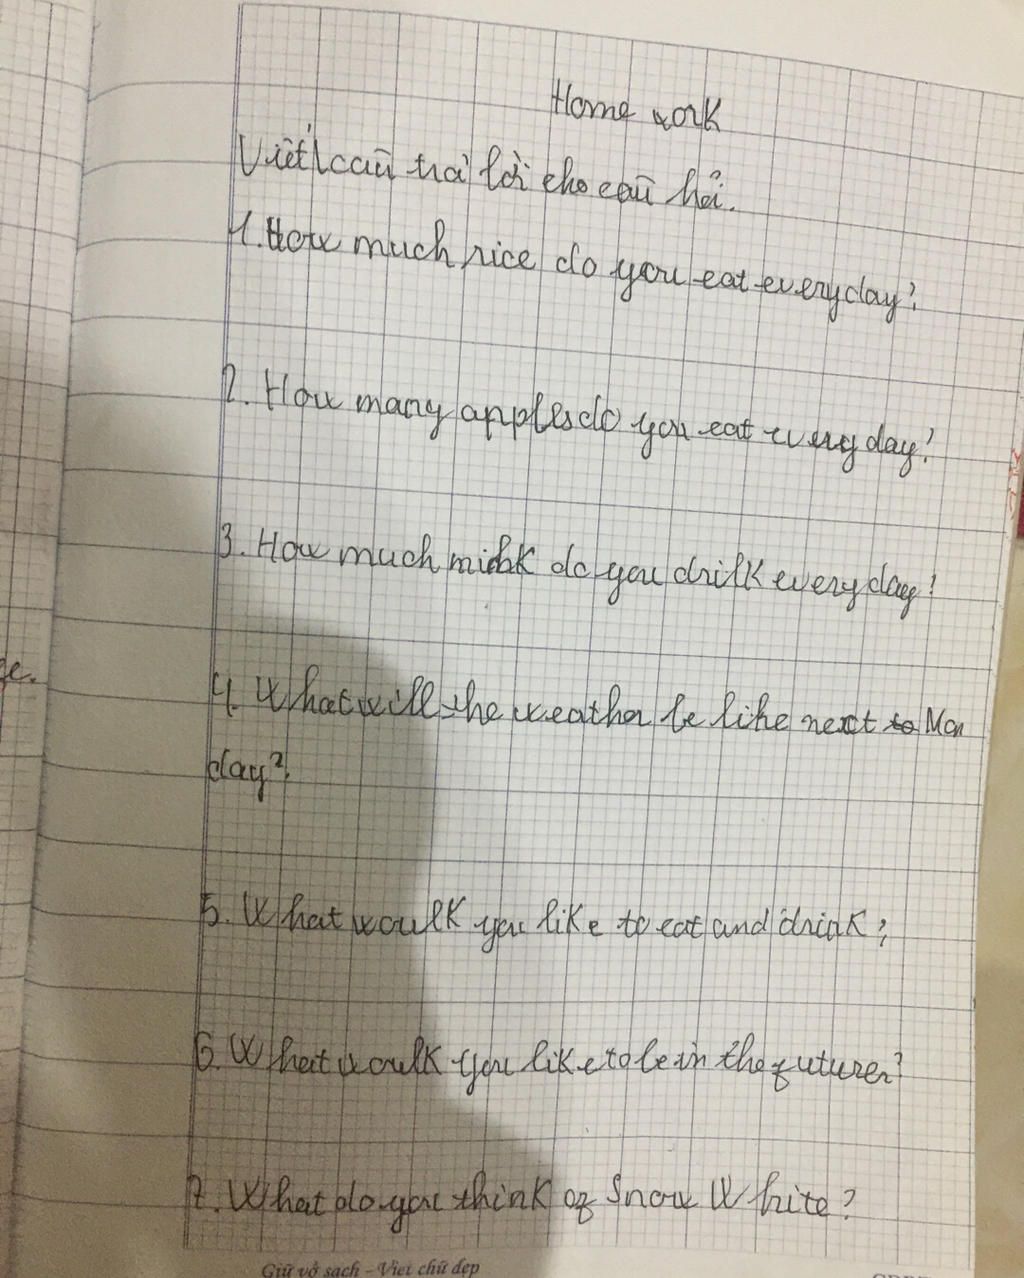 Home work
Viết câu trả lời cho câu hỏi.
1. How much rice do you eat everyday?
2. How many apples do you eat every day?
3. How much do you drilk everyday?
4. What will the weather be like next to Mon
day?
5. What woulk you like to eat and drink?
6. What woulk you like to be in the futurer?
7. What do you think of Snow White?
Giữ vở sạch - Viết chữ đẹp